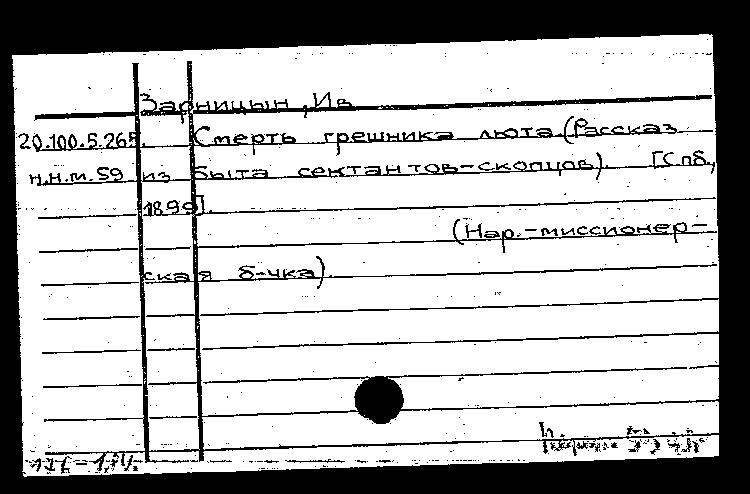 Зарницын, Ив
20.100.5.265. Смерть грешника люта (Рассказ
н.н.м. 59 из быта сектантов-скопцов). [Спб.,
1899].
(Нар.-миссионер-
ская б-чка)